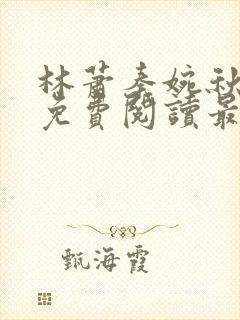 林蕭秦婉秋
免費閱讀最
甄海霞